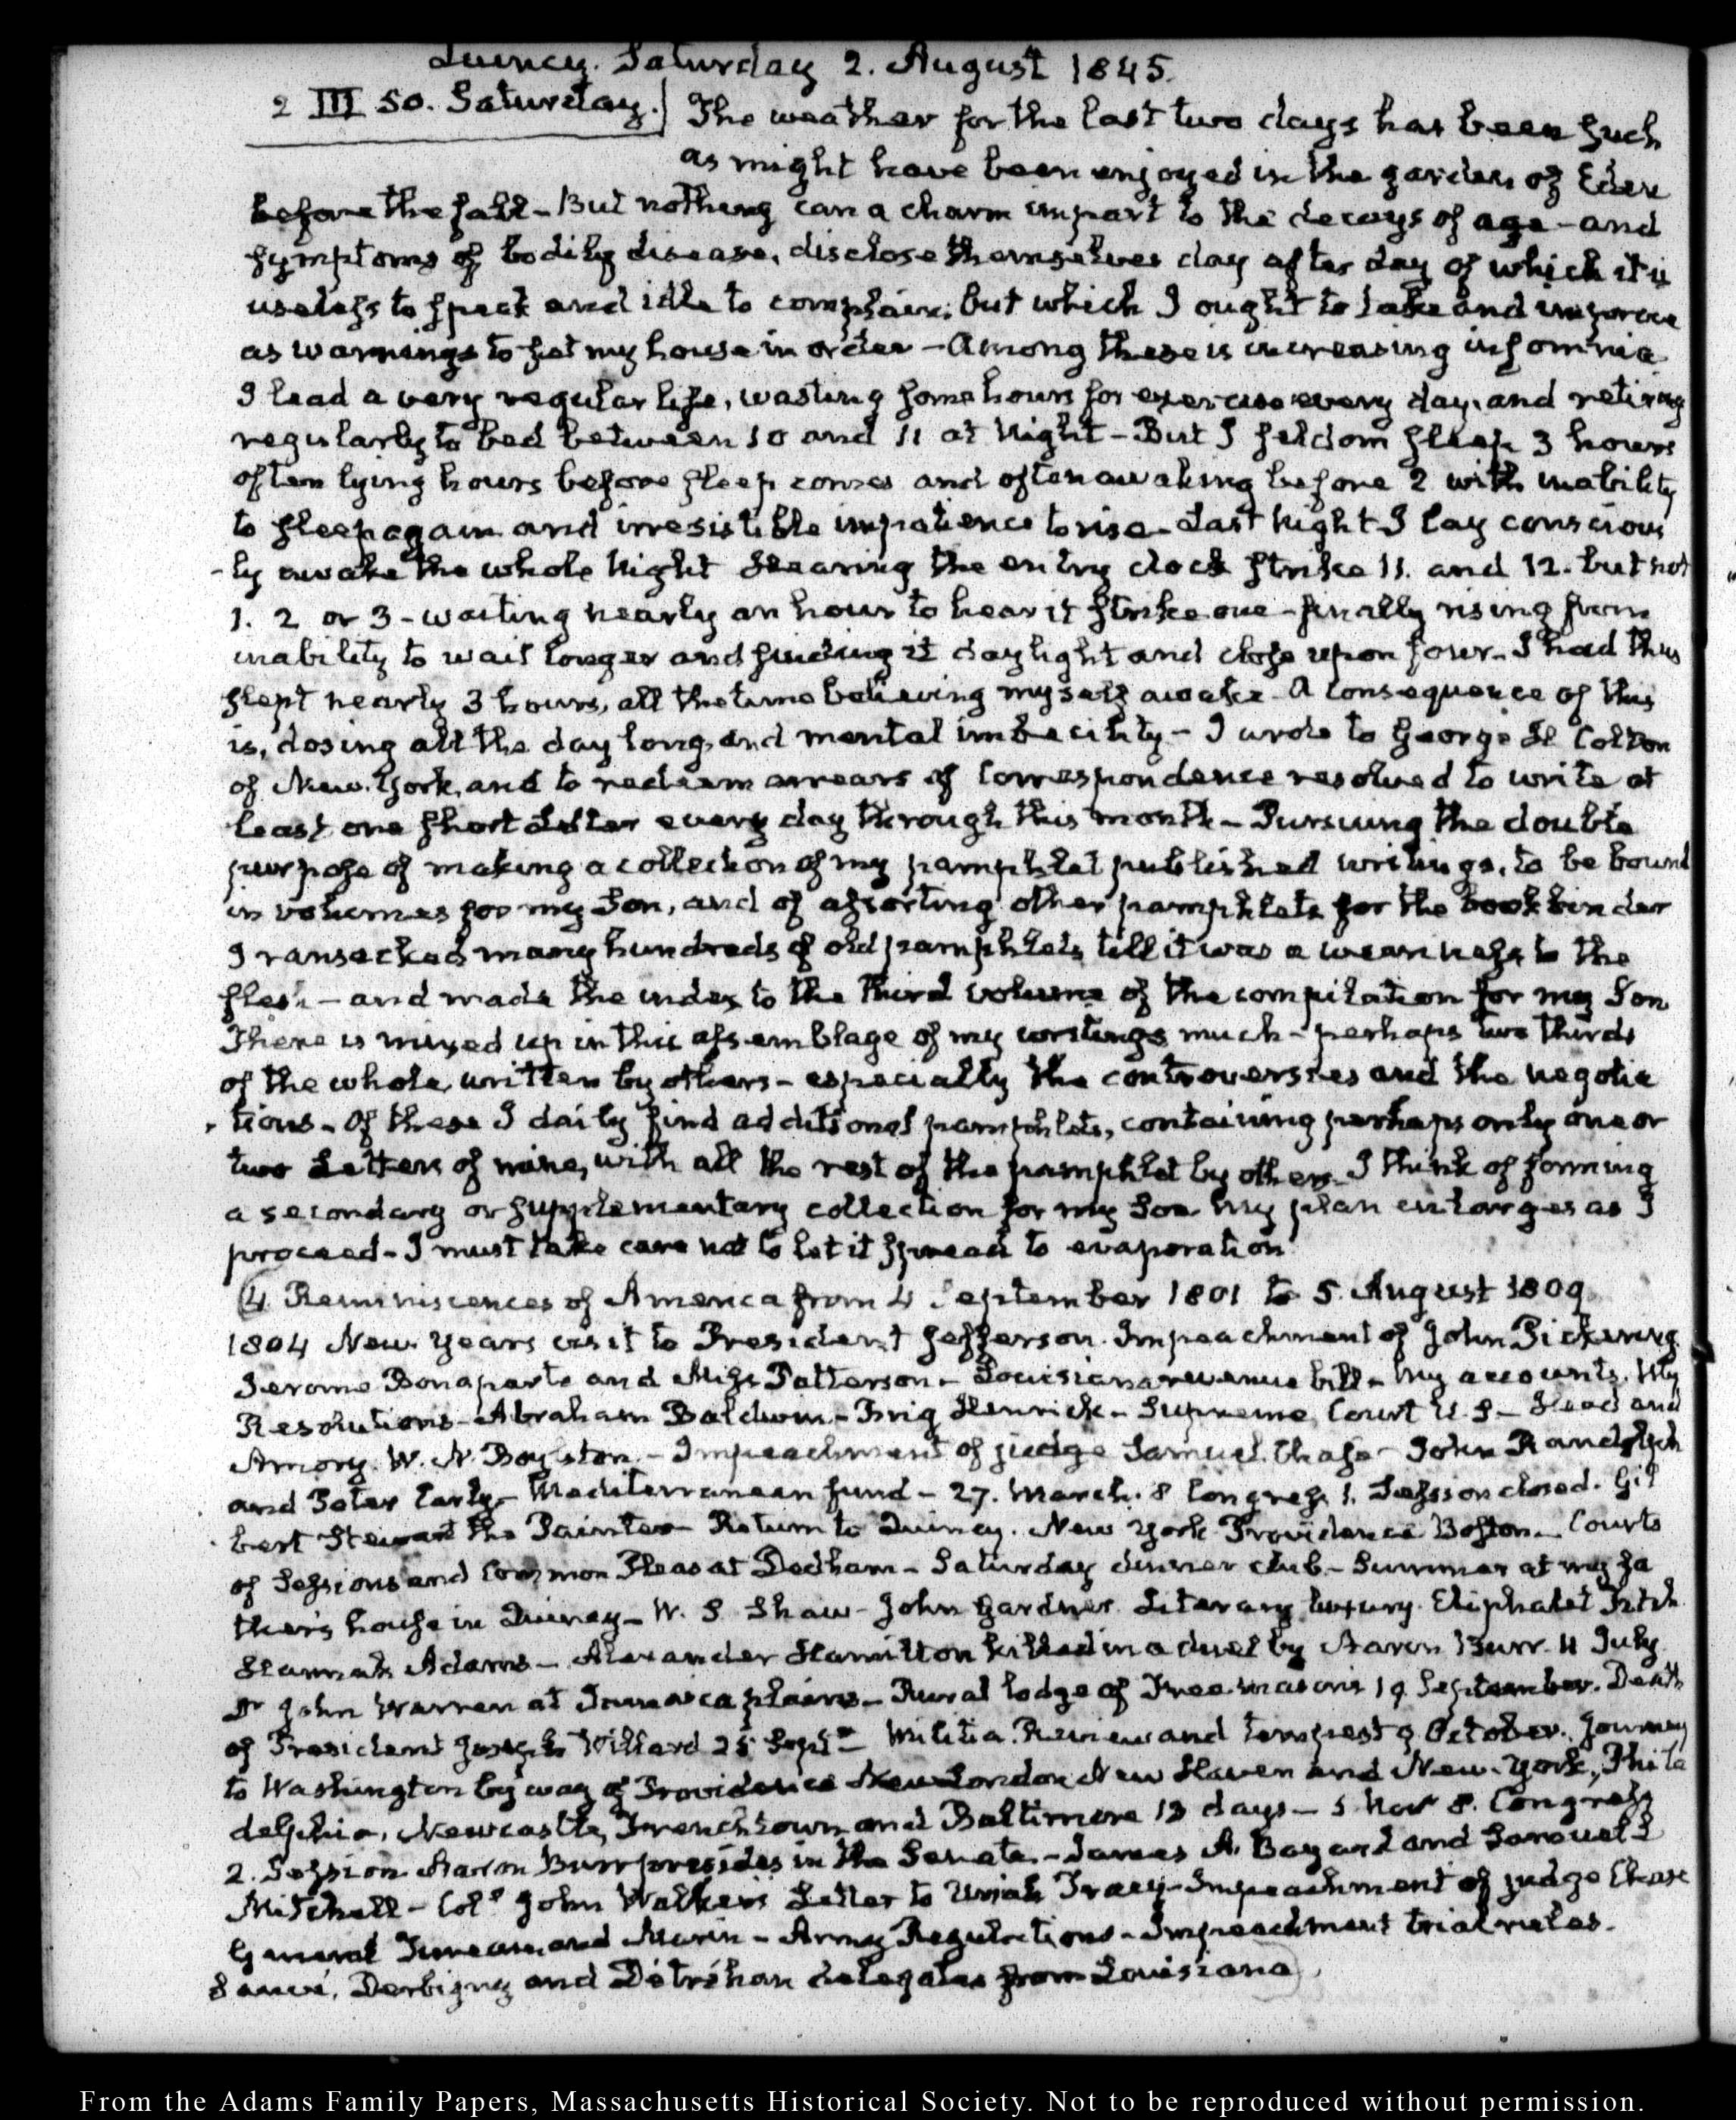 Quincy. Saturday 2. August 1845.
2 III 50. Saturday.] The weather for the last two days has been such
as might have been enjoyed in the garden of Eden
before the fall - But nothing can a charm impart to the decays of age - and
symptoms of bodily disease, disclose themselves day after day of which it is
useless to speak and idle to complain; but which I ought to take and improve
as warnings to set my house in order - Among these is increasing insomnia
I lead a very regular life, wasting some hours for exercise every day, and retiring
regularly to bed between 10 and 11 at Night - But I seldom sleep 3 hours
often lying hours before sleep comes and often awaking before 2 with inability
to sleep again and irresistible impatience to rise - Last Night I lay conscious
-ly awake the whole Night hearing the entry clock strike 11. and 12. but not
1. 2 or 3 - waiting nearly an hour to hear it strike one - finally rising from
inability to wait longer and finding it daylight and close upon four - I had thus
slept nearly 3 hours, all the time believing myself awake - A consequence of this
is, dosing all the day long, and mental imbecility - I wrote to George H Colton
of New-York, and to redeem arrears of correspondence resolved to write at
least one short Letter every day through this month - Pursuing the double
purpose of making a collection of my pamphlet published writings, to be bound
in volumes for my Son, and of assorting other pamphlets for the bookbinder
I ransacked many hundreds of old pamphlets till it was a weariness to the
flesh - and made the index to the third volume of the compilation for my Son
There is mixed up in this assemblage of my writings much - perhaps two thirds
of the whole written by others - especially the controversies and the negotia
-tions - Of these I daily find additional pamphlets, containing perhaps only one or
two Letters of mine, with all the rest of the pamphlet by others - I think of forming
a secondary or supplementary collection for my Son My plan enlarges as I
proceed - I must take care not to let it spread to evaporation
(4 Reminiscences of America from 4 September 1801 to 5. August 1809
1804 New Years visit to President Jefferson. Impeachment of John Pickering.
Jerome Bonaparte and Miss Patterson - Louisiana revenue bill - My accounts. My
Resolutions - Abraham Baldwin - Brig Henrick - Supreme Court U.S - Head and
Amory. W. N. Boylston - Impeachment of judge Samuel Chase - John Randolph
and Peter Early - Mediterranean fund - 27. March. 8 Congress 1. Session closed. Gil
-bert Stewart the Painter - Return to Quincy. New York Providence Boston - Courts
of Sessions and Common Pleas at Dedham - Saturday dinner club - Summer at my fa
ther's house in Quincy - W. S Shaw - John Gardner Literary luxury. Eliphalet Fitch
Hannah Adams - Alexander Hamilton killed in a duel by Aaron Burr 11 July
Dr John Warren at Jamaica plains - Rural lodge of Free masons 19 September. Death
of President Joseph Willard 25 Septr - Militia Review and tempest 9 October. Journey
to Washington by way of Providence New London New Haven and New-York, Phila
delphia, Newcastle, Frenchtown and Baltimore 13 days - 5 Nov 8. Congress
2. Session. Aaron Burr presides in the Senate - James A. Bayard and Samuel L
Mitchell - Coll John Walker's Letter to Uriah Tracy - Impeachment of judge Chase
General Tureau and Marin - Army Regulations - Impeachment trial rules.
Sauvé, Derbigny and Détréhan delegates from Louisiana)
From the Adams Family Papers, Massachusetts Historical Society. Not to be reproduced without permission.